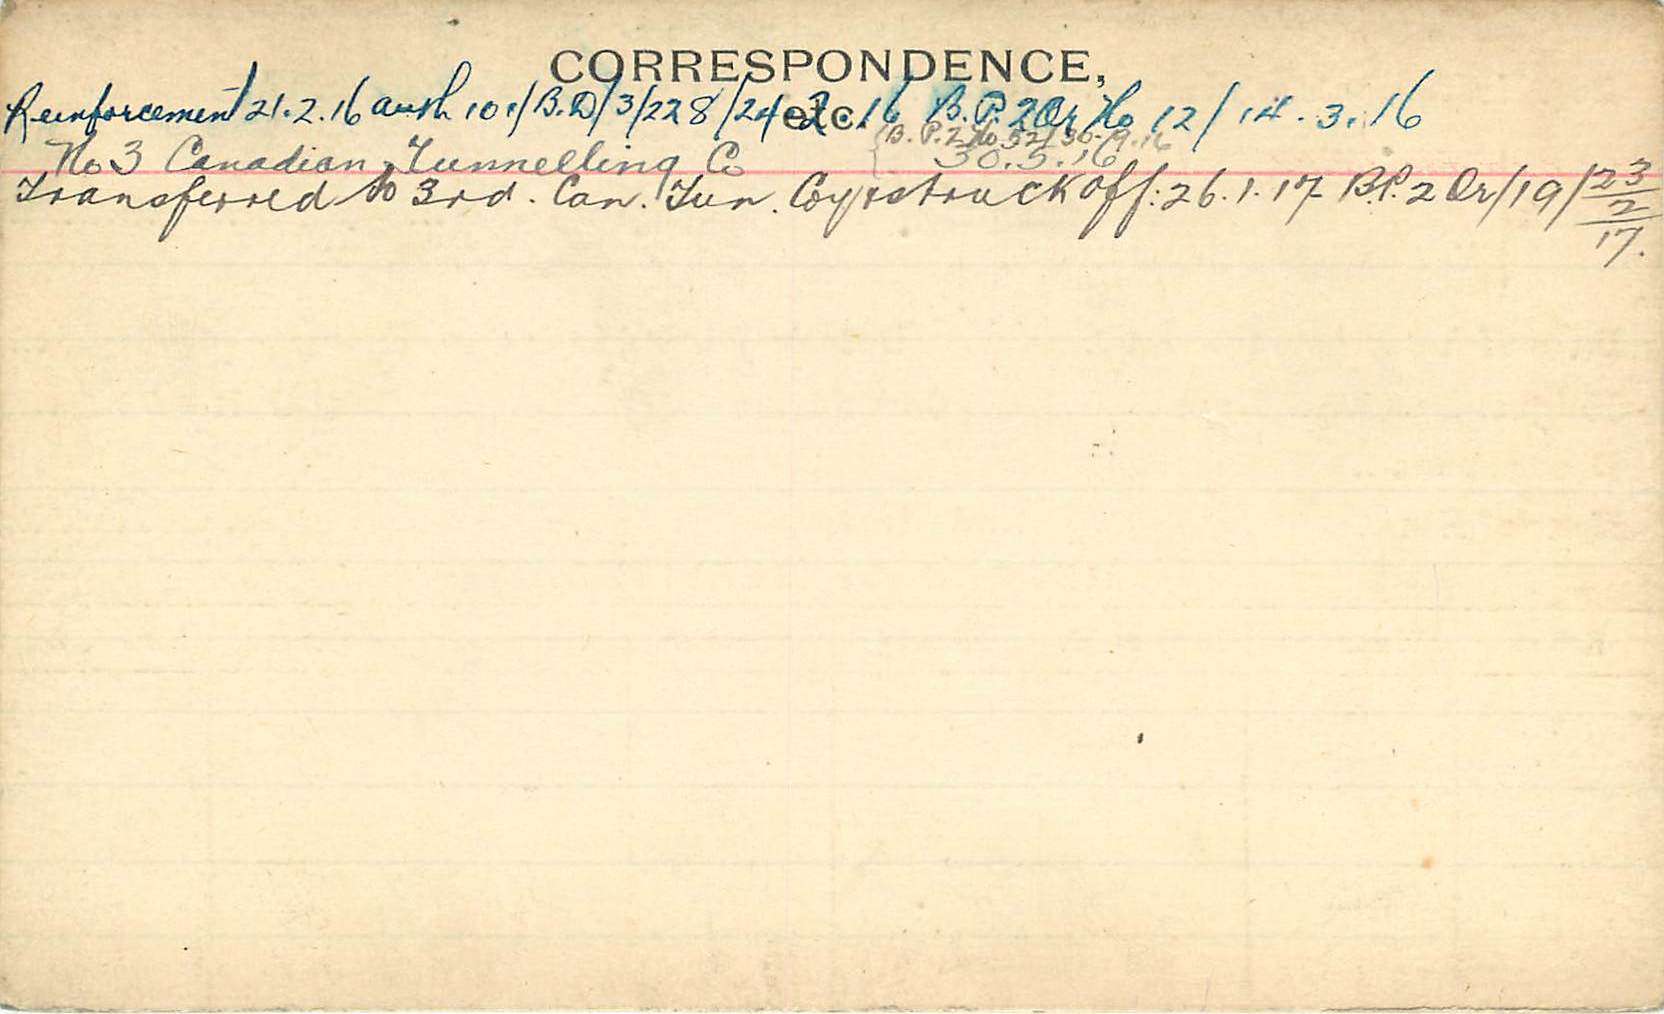 CORRESPONDENCE,
etc.
Reinforcement 21.2.16 auth 101/B.D/3/228/24.2.16 B.P.2 Or No 12/14.3.16
B.P.2 No 52/30.9.16
No 3 Canadian Tunnelling Co 30.5.16
Transferred to 3rd. Can. Tun. Coy & struck off: 26.1.17 B.P.2 Or/19/23/2/17.